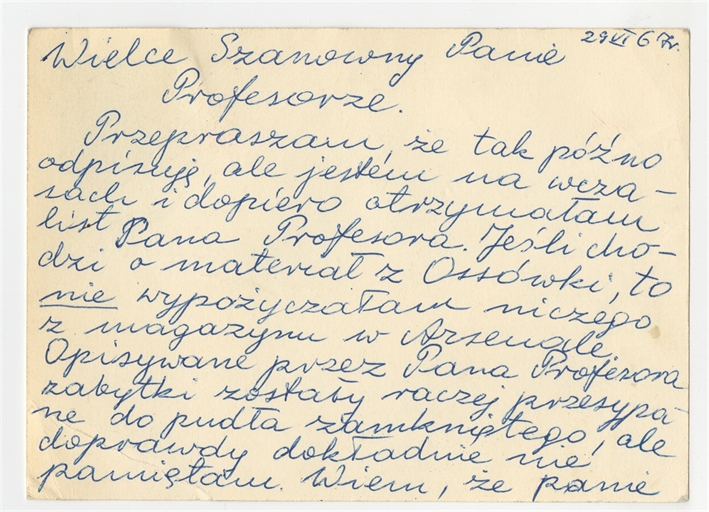 29 VI 67r.
Wielce Szanowny Panie
Profesorze.
Przepraszam, że tak późno
odpisuję, ale jestem na wcza-
sach i dopiero otrzymałam
list Pana Profesora. Jeśli cho-
dzi o materiał z Ossówki, to
nie wypożyczałam niczego
z magazynu w Arsenale.
Opisywane przez Pana Profesora
zabytki zostały raczej przesypa-
ne do pudła zamkniętego, ale
doprawdy dokładnie nie
pamiętam. Wiem, że panie